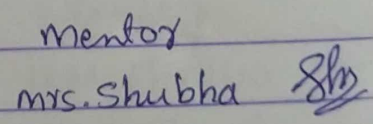 mentor
mrs. Shubha